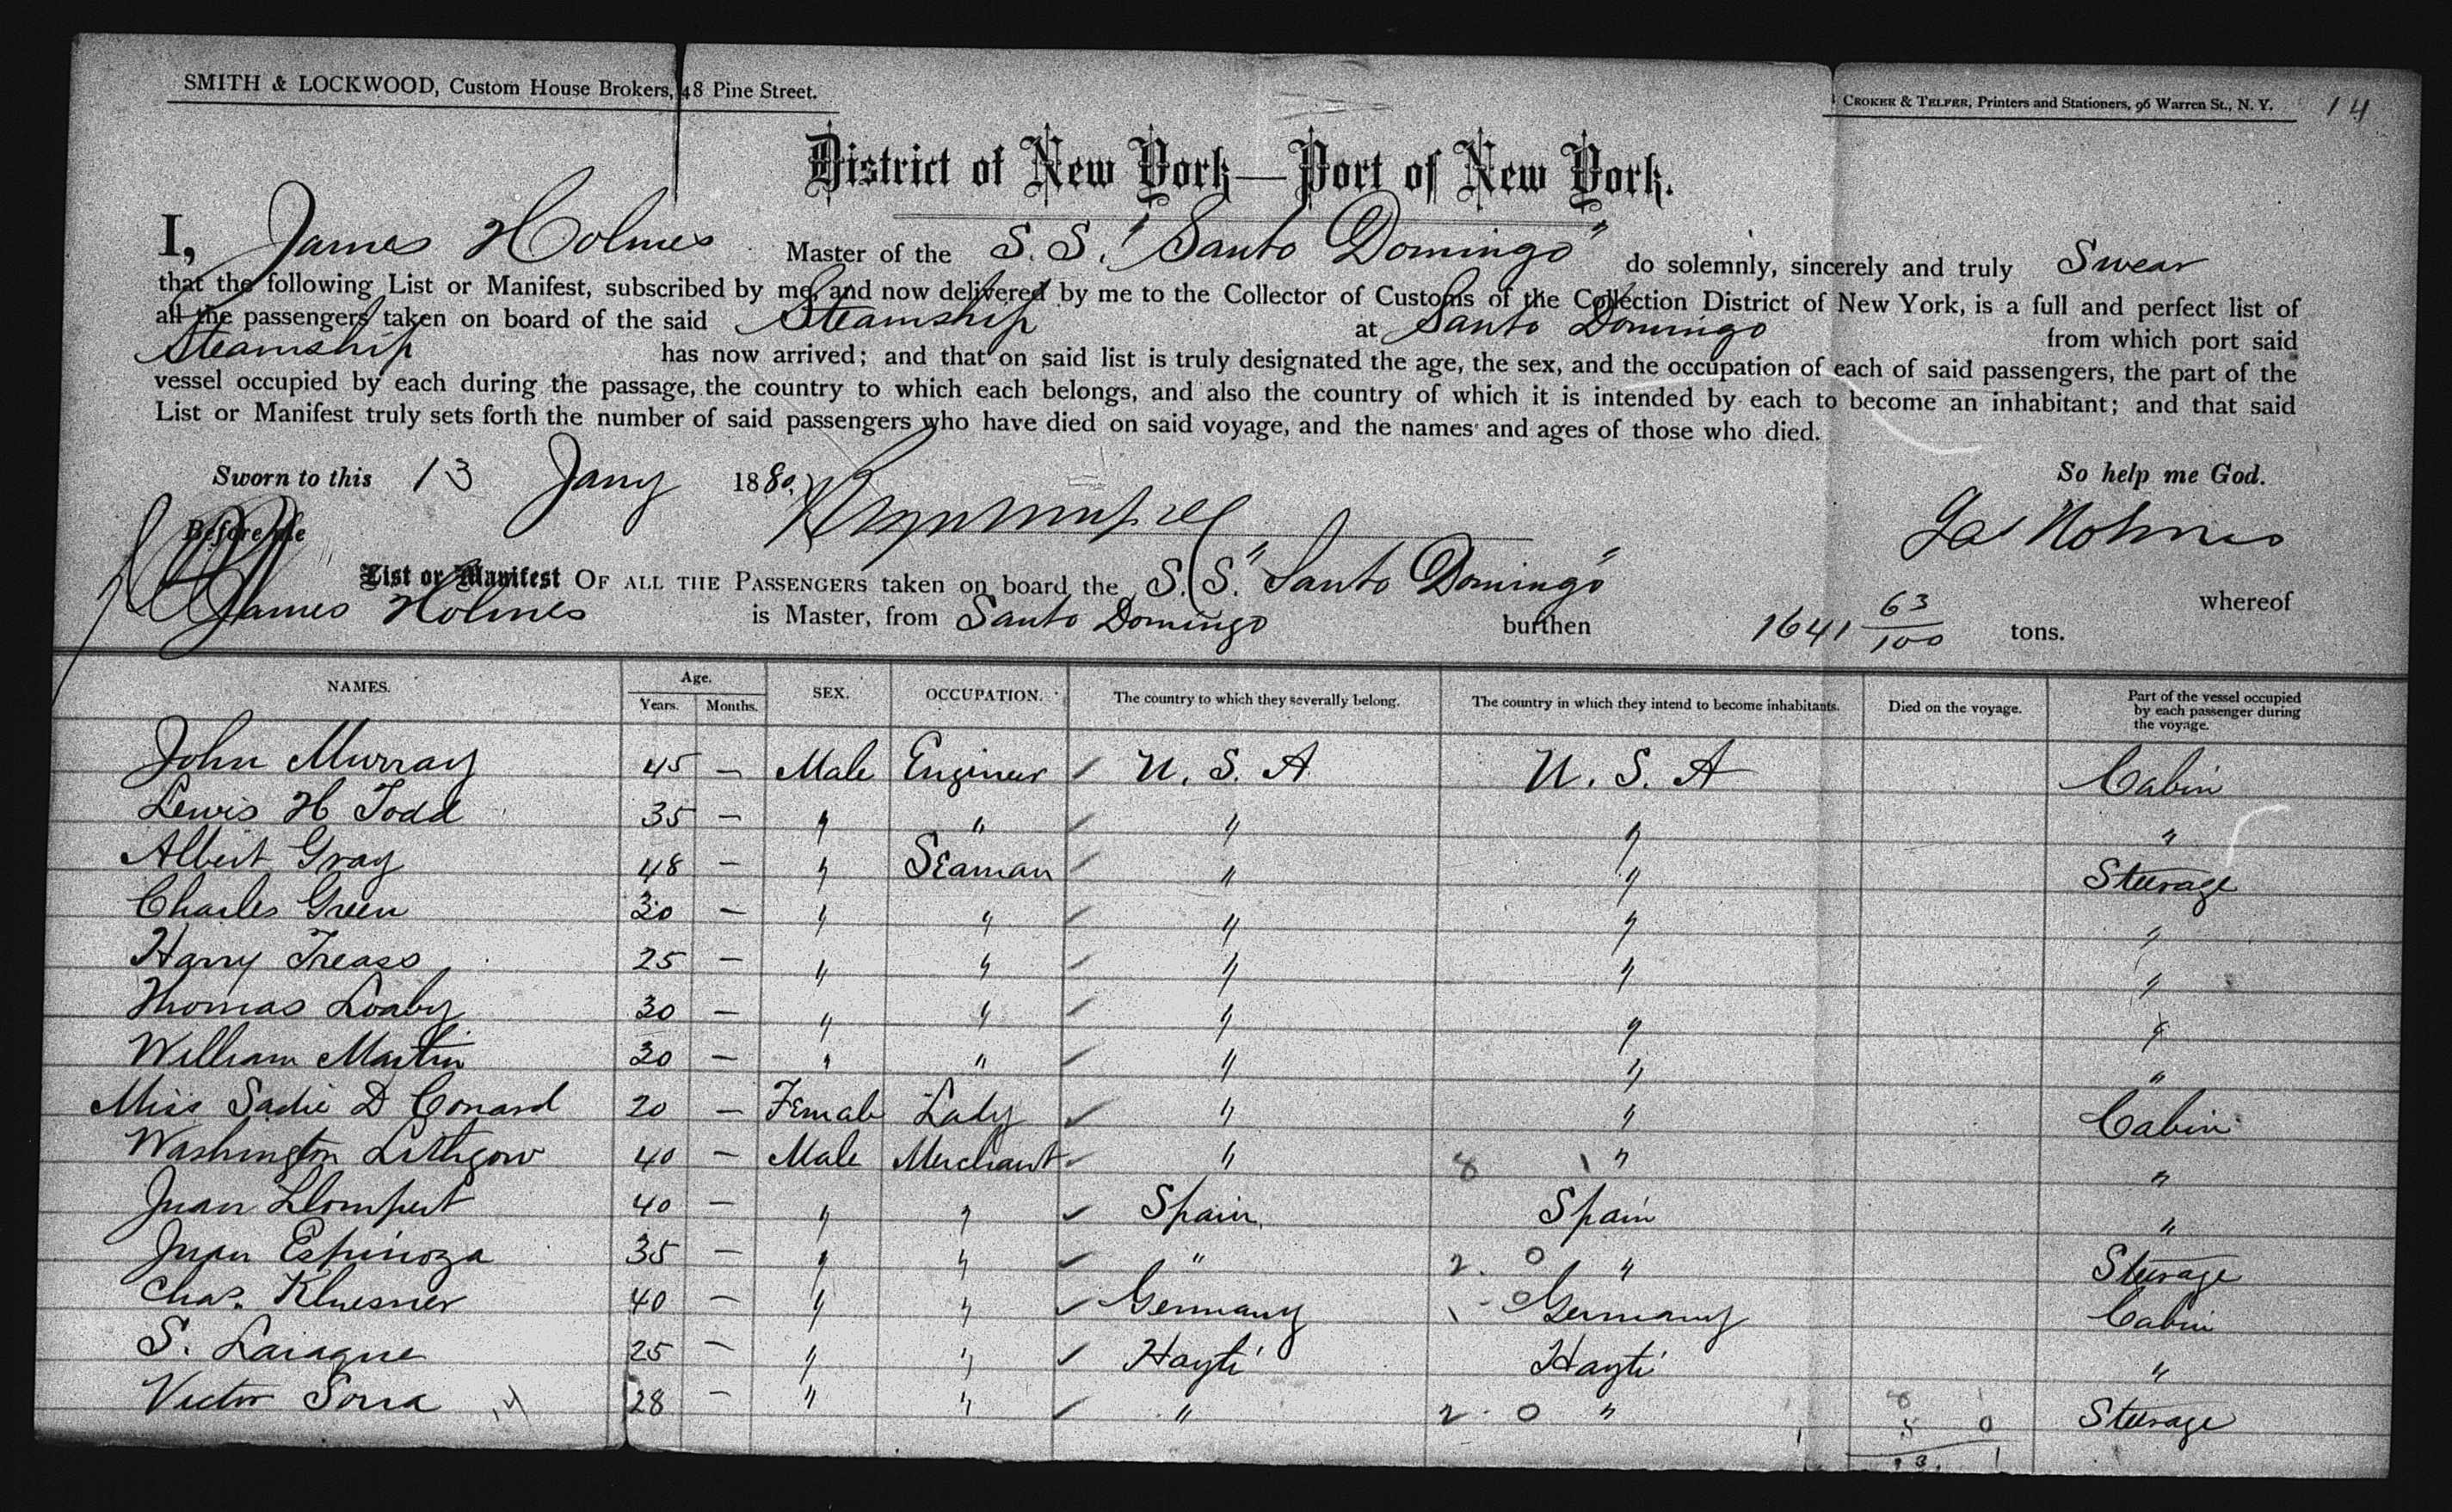 SMITH & LOCKWOOD, Custom House Brokers, 48 Pine Street.
CROKER & TELFER, Printers and Stationers, 96 Warren St., N. Y. 14
District of New York—Port of New York.
I, James Holmes Master of the S. S. "Santo Domingo" do solemnly, sincerely and truly Swear
that the following List or Manifest, subscribed by me, and now delivered by me to the Collector of Customs of the Collection District of New York, is a full and perfect list of
all the passengers taken on board of the said Steamship at Santo Domingo from which port said
Steamship has now arrived; and that on said list is truly designated the age, the sex, and the occupation of each of said passengers, the part of the
vessel occupied by each during the passage, the country to which each belongs, and also the country of which it is intended by each to become an inhabitant; and that said
List or Manifest truly sets forth the number of said passengers who have died on said voyage, and the names and ages of those who died.
Sworn to this 13 Jany 1880. So help me God.
Before me Jas Holmes
List or Manifest OF ALL THE PASSENGERS taken on board the S. S. "Santo Domingo" whereof
James Holmes is Master, from Santo Domingo burthen 1641 63/100 tons.
NAMES. Age. Years. Months. SEX. OCCUPATION. The country to which they severally belong. The country in which they intend to become inhabitants. Died on the voyage. Part of the vessel occupied by each passenger during the voyage.
John Murray 45 — Male Engineer U. S. A U. S. A Cabin
Lewis H Todd 35 — " " " " "
Albert Gray 48 — " Seaman " " Steerage
Charles Green 30 — " " " " "
Harry Treass 25 — " " " " "
Thomas Loaby 30 — " " " " "
William Martin 30 — " " " " "
Miss Sadie D Conard 20 — Female Lady " " Cabin
Washington Lithgow 40 — Male Merchant " 8 1 " "
Juan Llompert 40 — " " Spain Spain "
Juan Espinoza 35 — " " " 2. 0 " Steerage
Chas. Kluesner 40 — " " Germany 1 - 0 Germany Cabin
S. Laragne 25 — " " Hayti Hayti "
Victor Sorra 14 28 — " " " 2 - 0 " Steerage